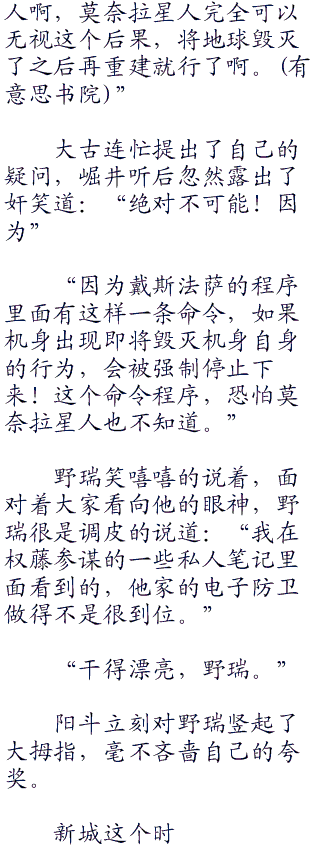 人啊，莫奈拉星人完全可以
无视这个后果，将地球毁灭
了之后再重建就行了啊。(有
意思书院)”
大古连忙提出了自己的
疑问，崛井听后忽然露出了
奸笑道：“绝对不可能！因
为”
“因为戴斯法萨的程序
里面有这样一条命令，如果
机身出现即将毁灭机身自身
的行为，会被强制停止下
来！这个命令程序，恐怕莫
奈拉星人也不知道。”
野瑞笑嘻嘻的说着，面
对着大家看向他的眼神，野
瑞很是调皮的说道：“我在
权藤参谋的一些私人笔记里
面看到的，他家的电子防卫
做得不是很到位。”
“干得漂亮，野瑞。”
阳斗立刻对野瑞竖起了
大拇指，毫不吝啬自己的夸
奖。
新城这个时